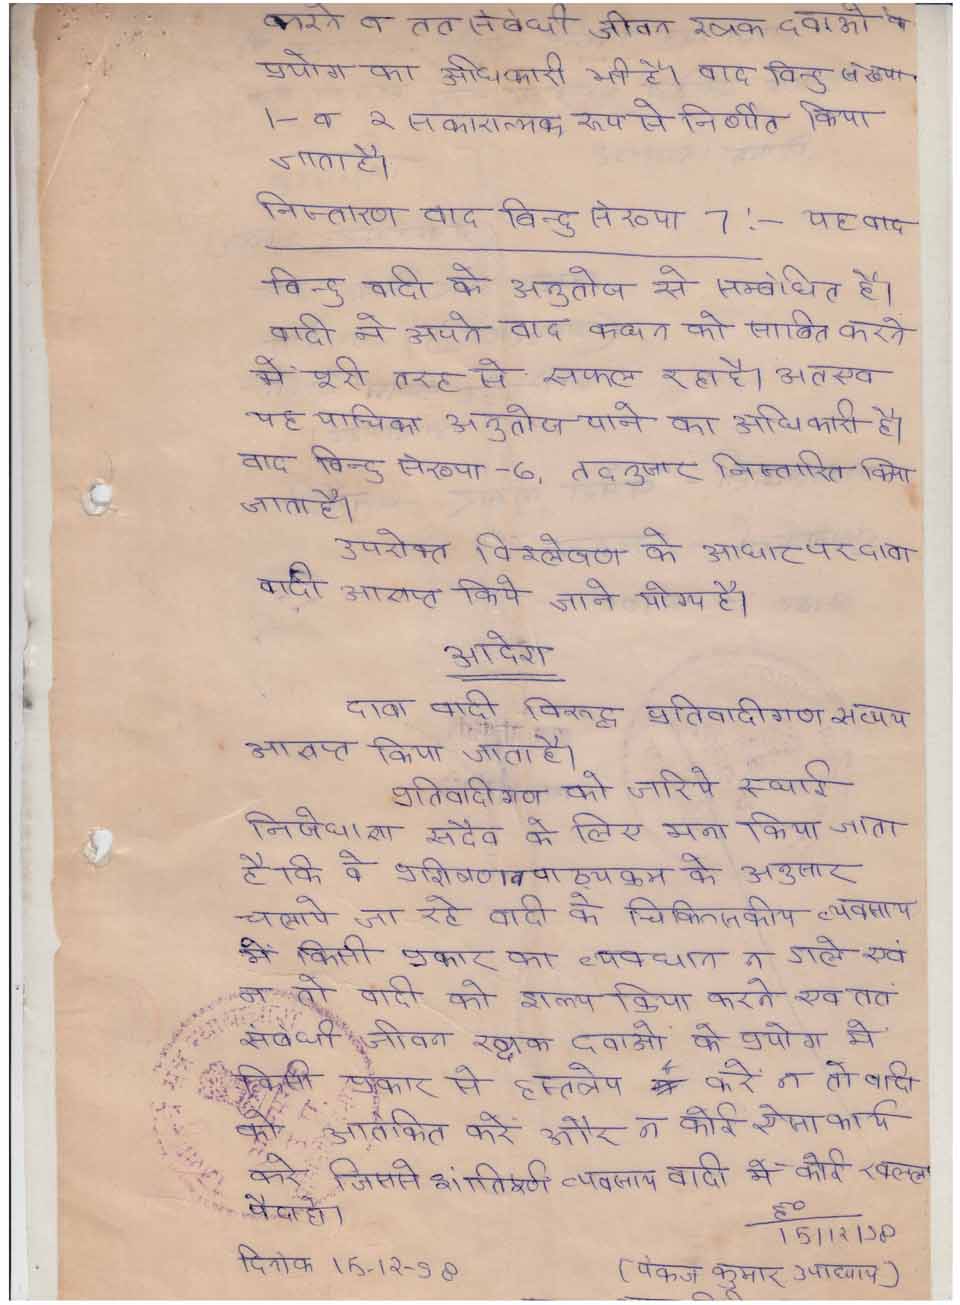 करने व तत संबंधी जीवन रक्षक दवाओ के
प्रयोग का अधिकारी भी है। वाद विन्दु संख्या
1- व २ सकारात्मक रूप से निर्णीत किया
जाता है।
निस्तारण वाद विन्दु संख्या 7 :- यह वाद
विन्दु वादी के अनुतोष से सम्बंधित है।
वादी ने अपने वाद कथन को साबित करने
में पूरी तरह से सफल रहा है। अतएव
यह याचिका अनुतोष पाने का अधिकारी है।
वाद विन्दु संख्या -७, तदनुसार निस्तारित किया
जाता है।
उपरोक्त विश्लेषण के आधार पर दावा
वादी आज्ञप्त किये जाने योग्य है।
आदेश
दावा वादी विरूद्ध प्रतिवादीगण सव्यय
आज्ञप्त किया जाता है।
प्रतिवादीगण को जरिये स्थाई
निषेधाज्ञा सदैव के लिए मना किया जाता
है कि वे प्रशिक्षण व पाठ्यक्रम के अनुसार
चलाये जा रहे वादी के चिकित्सकीय व्यवसाय
में किसी प्रकार का व्यवधान न डाले एवं
न तो वादी को शल्य क्रिया करने एव तत
संबंधी जीवन रक्षक दवाओं के प्रयोग में
किसी प्रकार से हस्तक्षेप करें न तो वादी
को आतंकित करें और न कोई ऐसा कार्य
करे जिससे शांतिपूर्ण व्यवसाय वादी में कोई खलल
पैदा हो।
ह०
15/12/98
दिनांक 15-12-98 (पंकज कुमार उपाध्याय)